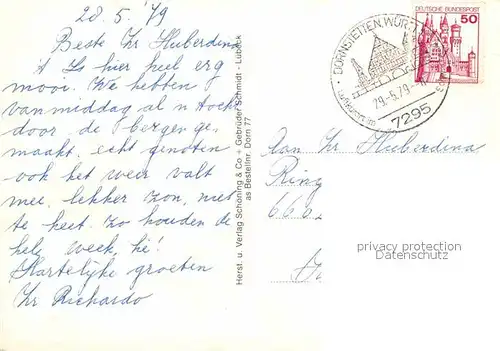 28.5.'79
Beste Zr Huberdina
't Is hier heel erg
mooi. We hebben
vanmiddag al n tocht
door de bergen ge-
maakt, echt genoten
ook het weer valt
mee, lekker zon, niet
te heet. Zo houden de
hele week, hè!
Hartelijke groeten
Zr Richardo
Herst. u. Verlag Schöning & Co - Gebrüder Schmidt - Lübeck
as Bestellnr. Dorn 77
DORNSTETTEN, WÜRTT
Luftkurort im
29.-5.79-
7295
DEUTSCHE BUNDESPOST
50
Aan Zr Huberdina
Ring
6602
privacy protection
Datenschutz